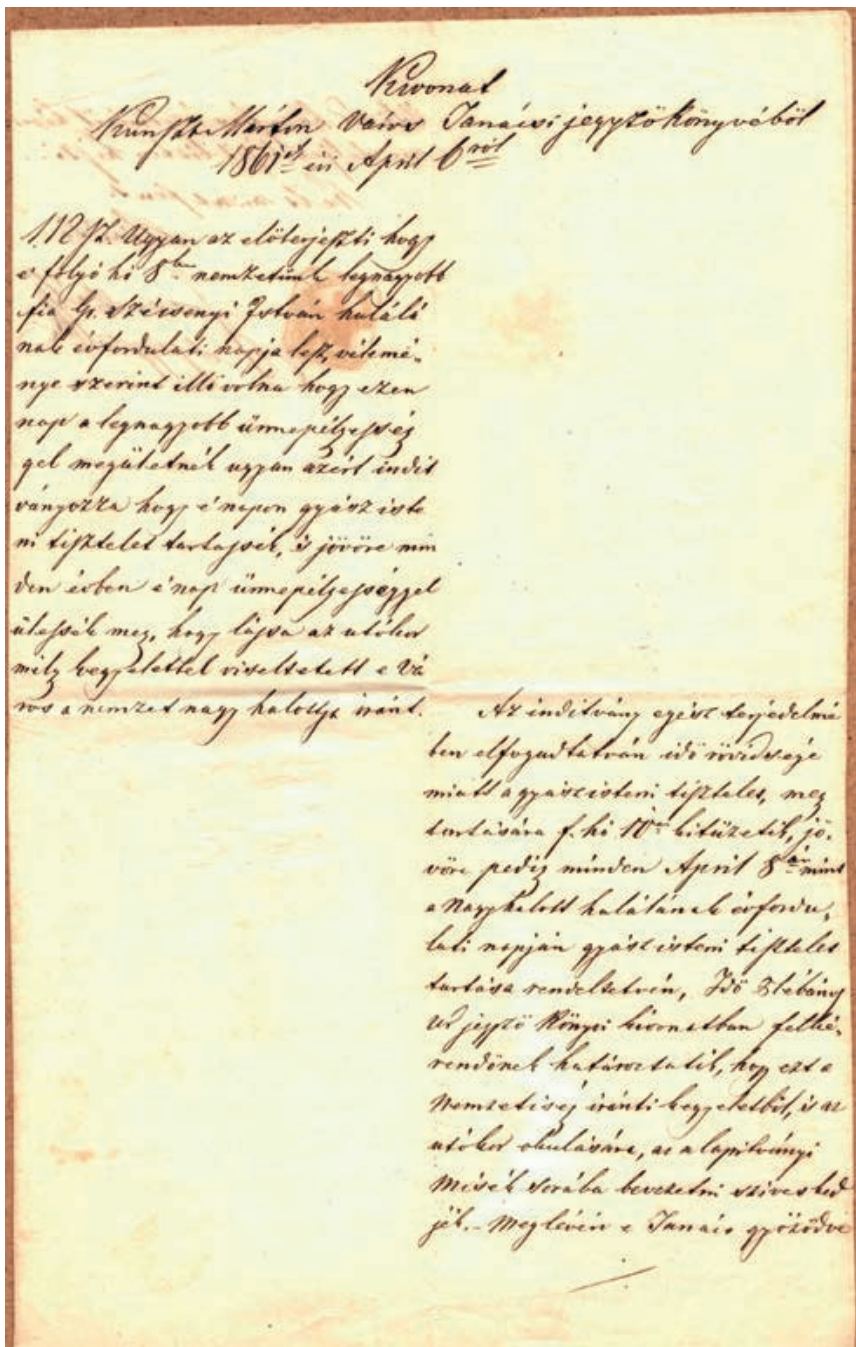 Kivonat
Kunszt Márton Város Tanácsi jegyzőkönyvéből
1861ik évi April 6ról
112 sz. Ugyan az előterjeszti hogy
e folyó hó 8án nemzetünk legnagyobb
fia Gr. Szécsenyi István halálá
nak évfordulati napja lesz, vélemé-
nye szerint illő volna hogy ezen
nap a legnagyobb ünnepélyesség
gel megületnék ugyan azért indít
ványozza hogy é napon gyász iste
ni tisztelet tartassék, és jövőre min
den évben é nap ünnepélyességgel
ülessék meg, hogy lássa az utókor
mily kegyelettel viseltetett e Vá
ros a nemzet nagy halottja iránt.
Az indítvány egész terjedelmé
ben elfogadtatván idő rövidsége
miatt a gyász isteni tisztelet, meg
tartására f. hó 10én kitüzetik, jö-
vőre pedig minden April 8án mint
a Nagyhalott halálának évfordu-
lati napján gyász isteni tisztelet
tartása rendeltetvén, Plébános
Ur jegyző könyvi kivonatban felké-
rendőnek határoztatik, hogy ezt a
Nemzetiség iránti kegyeletből, és az
utókor okulására, az alapítványi
Misék sorába bevezetni sziveskED
jék. - Meglévén e Tanács győződve